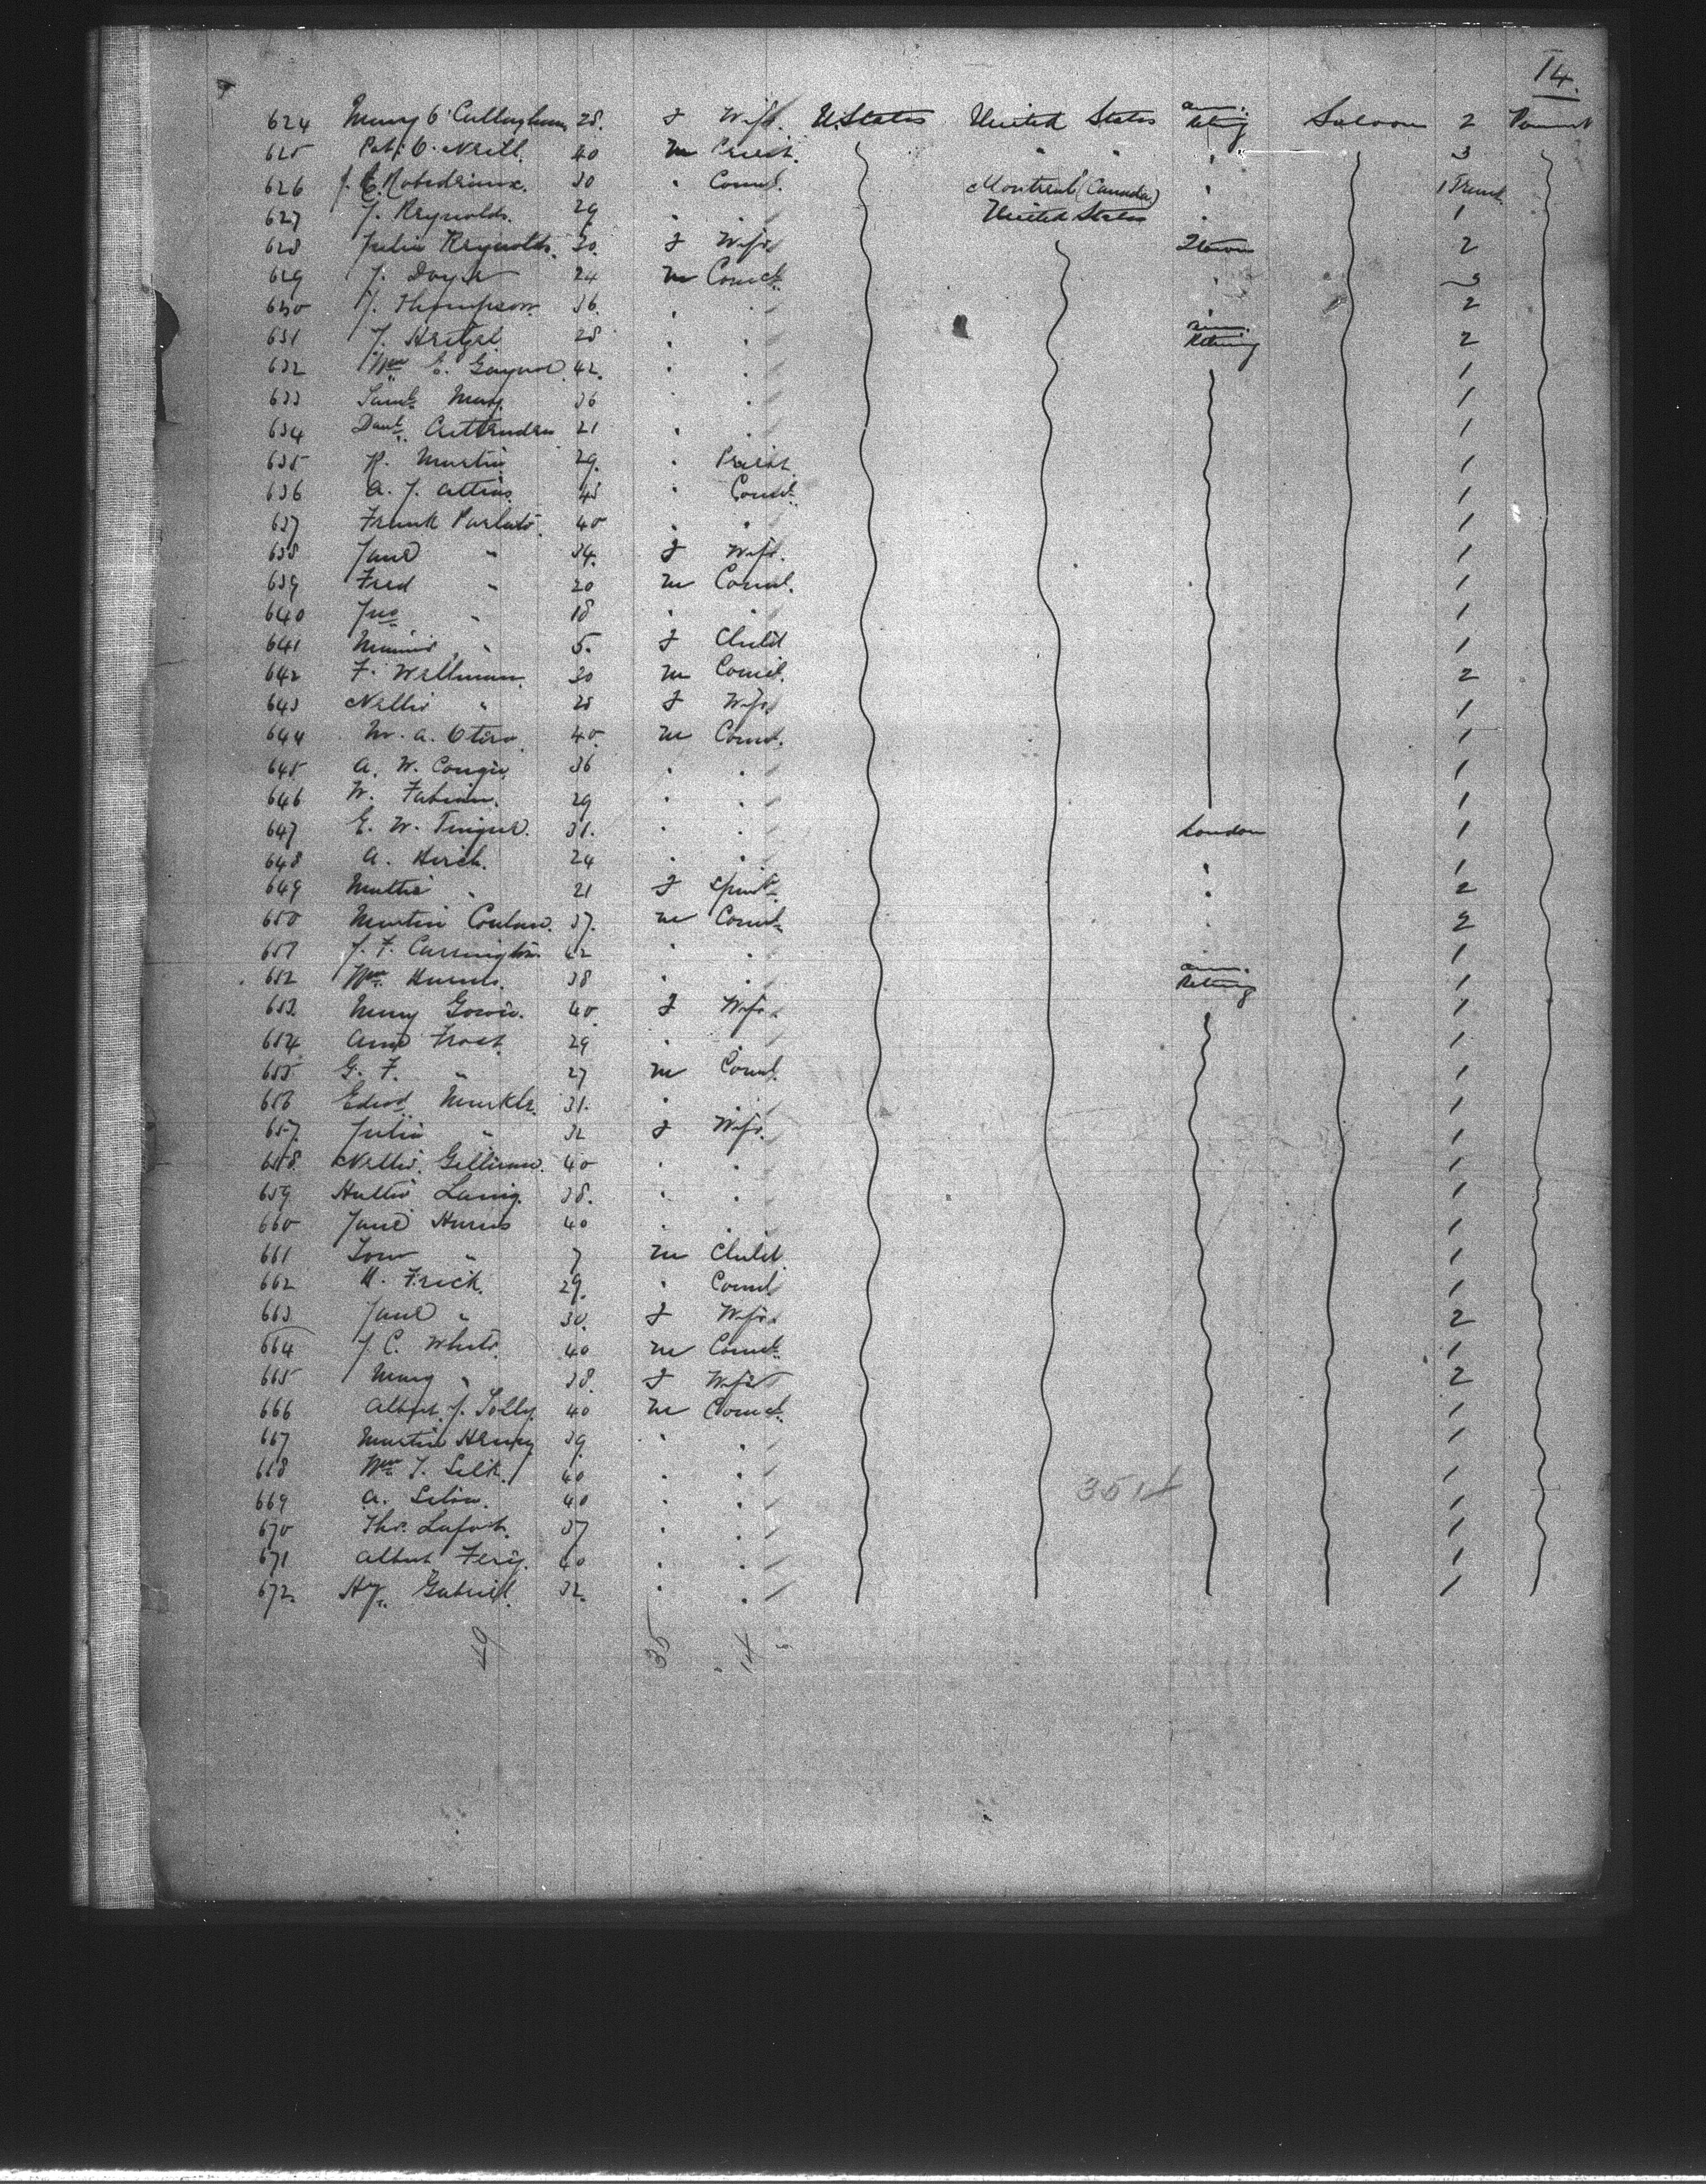 14.
624 Mary O'Callaghan 28. F Wife. U.States United States Am. Retng Saloon 2 Perment
625 Pat. O.Neill. 40 M Priest. " " " 3
626 J. E. Robedeaux. 30 " Comcl. Montreal (Canada) " 1 Trunk
627 J. Reynolds. 29 " " United States " 1
628 Julia Reynolds. 30. F Wife 2
629 J. Doyle 24 M Comcl. " 3
630 J. Thompson. 36. " " " 2
631 J. Hertzel. 28 " " Am. Retng 2
632 Wm E. Gaynor 42. " " 1
633 Saml. May. 36 " " 1
634 Danl. Crittenden 21 " " 1
635 P. Martin 29. " Priest. 1
636 A. J. Atkins 45 " Comcl. 1
637 Frank Parlato. 40 " " 1
638 Jane " 34. F Wife. 1
639 Fred " 20 M Comcl. 1
640 Jno " 18 " " 1
641 Minnie " 5. F Child 1
642 F. Wellman. 30 M Comcl. 2
643 Nellie " 28 F Wife 1
644 M. A. Otero. 40. M Comcl. 1
645 A. W. 36 " " 1
646 W. Fabian. 29 " " 1
647 E. W. 31. " " London 1
648 A. Hirch. 24 " " " 1
649 Mattie " 21 F Spinr. " 2
650 Martin 37. M Comcl. " 2
651 J. F. Carrington. 42 " " " 1
652 Wm. Harris. 38 " " Am. Retng 1
653. Mary 40. F Wife. 1
654 Ann Frost. 29 " " 1
655 G. F. " 27 M Comcl. 1
656 Edwd. Markle. 31. " " 1
657. Julia " 32 F Wife. 1
658. Nellie. 40 " " 1
659 Hattie Laing. 38. " " 1
660 Jane Harris 40 " " 1
661 Tom " 7 M Child. 1
662 H. Frick. 29. " Comcl 1
663 Jane " 30. F Wife. 2
664 J. C. White. 40 M Comcl. 1
665 Mary " 38. F Wife 2
666 Albert J. Solly. 40 M Comcl. 1
667 Martin Henry 39. " " 1
668 Wm J. Silk. 40 " " 3514 1
669 A. 40 " " 1
670 Thos. Lafort. 37 " " 1
671 Albert 40 " " 1
672. Hy. Gabriel. 32. " " 1
49 35 14